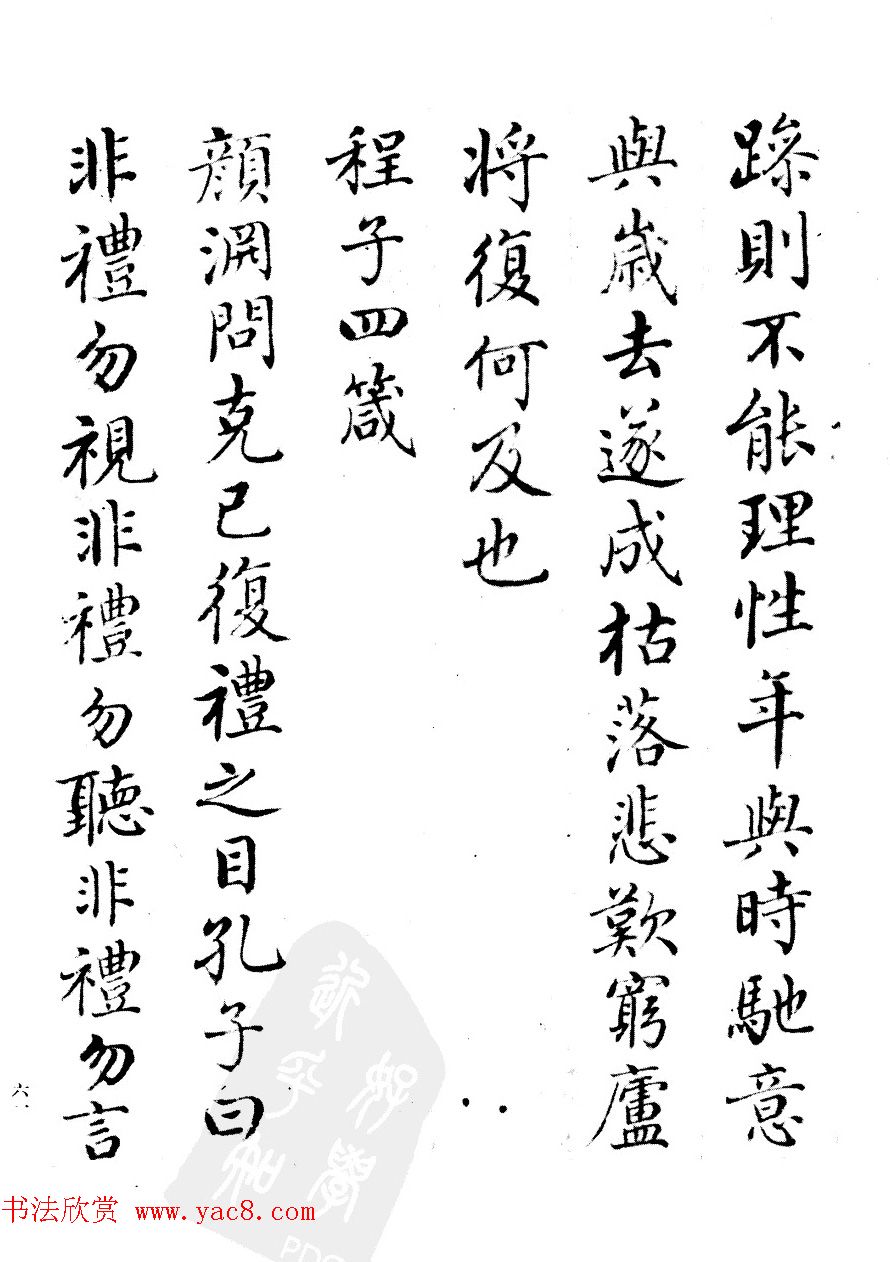 躁則不能理性年與時馳意
與歲去遂成枯落悲歎窮廬
將復何及也
程子四箴
顏淵問克己復禮之目孔子曰
非禮勿視非禮勿聽非禮勿言
六一
书法欣赏 www.yac8.com
好學
近乎知
PDG